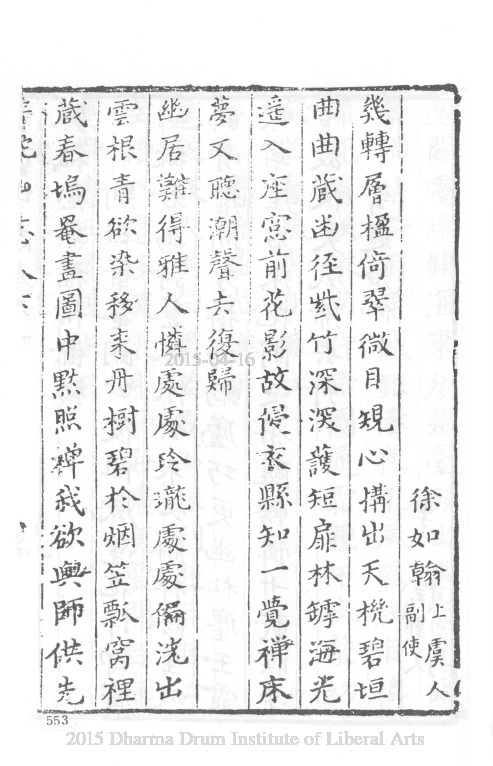 徐如翰上虞人副使
幾轉層楹倚翠微目規心搆出天機碧垣
曲曲藏幽徑紫竹深深護短扉林罅海光
遥入座窓前花影故侵衣縣知一覺禪床
夢又聽潮聲去復歸
幽居難得雅人憐處處玲瓏處處偏洗出
雲根青欲染移来丹樹碧於烟笠瓢窩裡
藏春塢菴畫圖中黙照禪我欲與師供先
2015-04-16
553
2015 Dharma Drum Institute of Liberal Arts